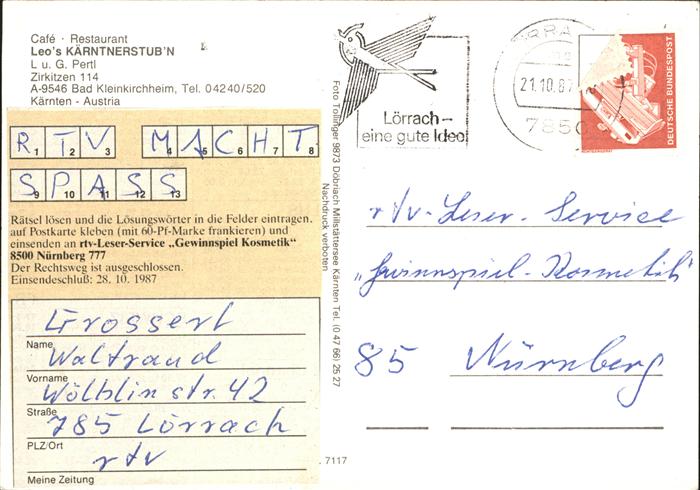 Café · Restaurant
Leo's KÄRNTNERSTUB'N
L u. G. Pertl
Zirkitzen 114
A-9546 Bad Kleinkirchheim, Tel. 04240/520
Kärnten - Austria
RTV MACHT
1 2 3 4 5 6 7 8
SPASS
9 10 11 12 13
Rätsel lösen und die Lösungswörter in die Felder eintragen,
auf Postkarte kleben (mit 60-Pf-Marke frankieren) und
einsenden an rtv-Leser-Service „Gewinnspiel Kosmetik"
8500 Nürnberg 777
Der Rechtsweg ist ausgeschlossen.
Einsendeschluß: 28. 10. 1987
Grossert
Name
Waltraud
Vorname
Wölblin str. 42
Straße
785 Lörrach
PLZ/Ort
rtv
Meine Zeitung
Foto Tollinger 9873 Döbriach Millstättersee Kärnten Tel. (0 47 66) 25 27
Nachdruck verboten
7117
Lörrach –
eine gute Idee!
21.10.87
7850
DEUTSCHE BUNDESPOST
rtv-Leser-Service
„Gewinnspiel-Kosmetik"
85 Nürnberg